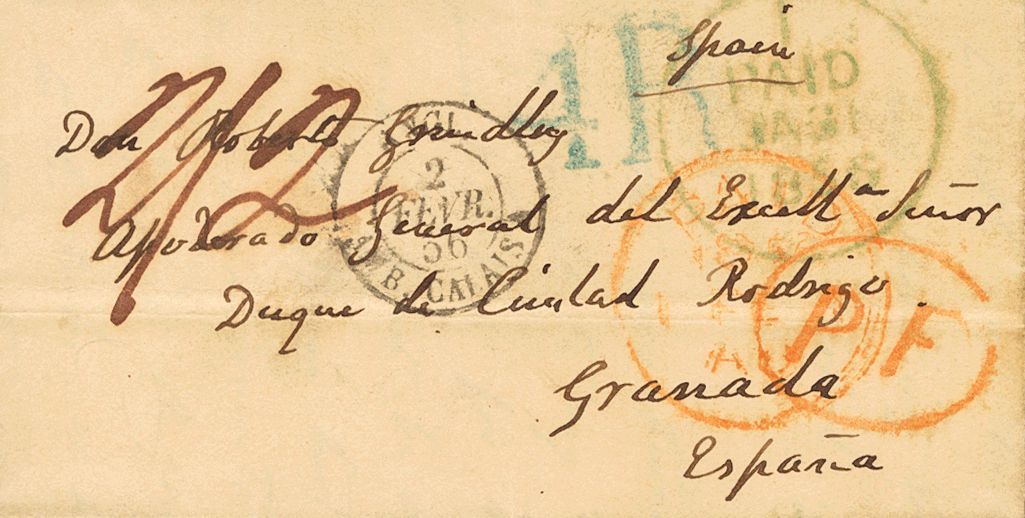 Spain
4R
PAID
1856
2/2
Don Roberto Grindley
Apoderado General del Excell.mo Señor
Duque de Ciudad Rodrigo.
Granada
España
2
FEVR.
56
CALAIS
PF